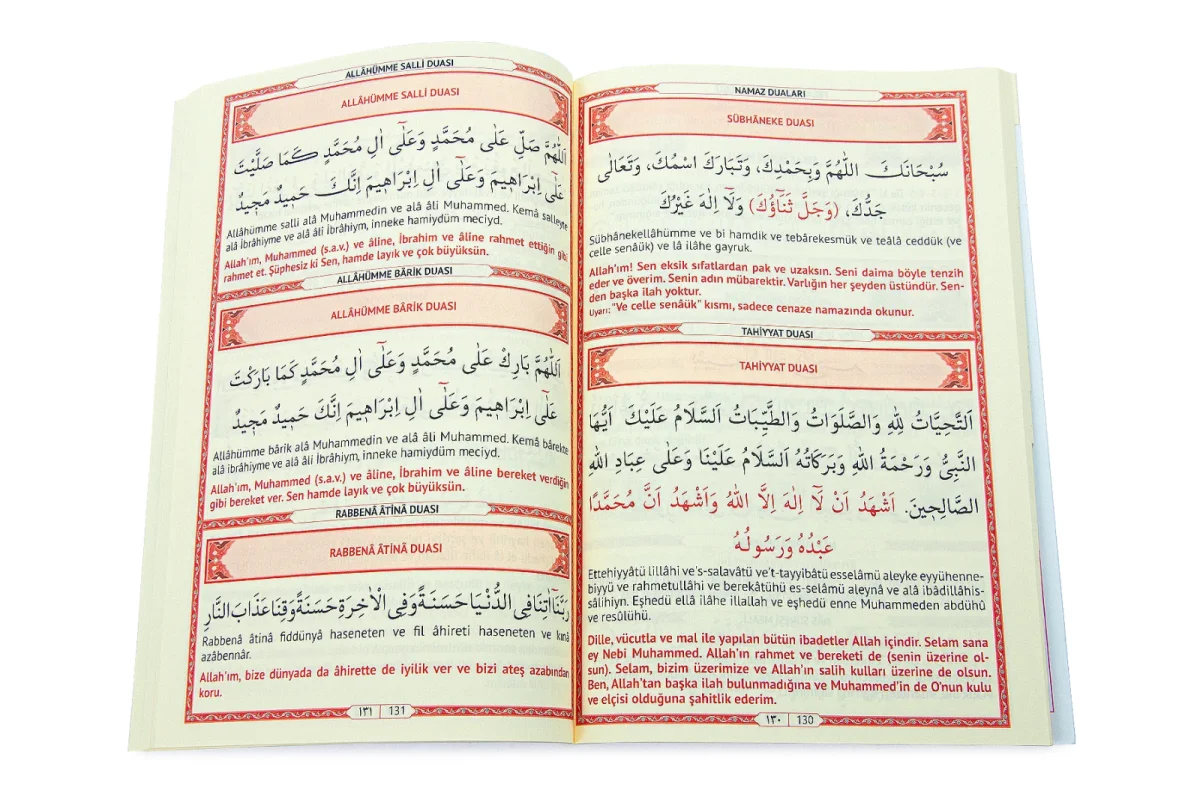 NAMAZ DUALARI
SÜBHÂNEKE DUASI
سُبْحَانَكَ اللّٰهُمَّ وَبِحَمْدِكَ، وَتَبَارَكَ اسْمُكَ، وَتَعَالٰى
جَدُّكَ، (وَجَلَّ ثَنَاؤُكَ) وَلَٓا اِلٰهَ غَيْرُكَ
Sübhânekellâhümme ve bi hamdik ve tebârekesmük ve teâlâ ceddük (ve
celle senâük) ve lâ ilâhe gayruk.
Allah'ım! Sen eksik sıfatlardan pak ve uzaksın. Seni daima böyle tenzih
eder ve överim. Senin adın mübarektir. Varlığın her şeyden üstündür. Sen-
den başka ilah yoktur.
Uyarı: "Ve celle senâük" kısmı, sadece cenaze namazında okunur.
TAHİYYAT DUASI
TAHİYYAT DUASI
اَلتَّحِيَّاتُ لِلّٰهِ وَالصَّلَوَاتُ وَالطَّيِّبَاتُ اَلسَّلَامُ عَلَيْكَ اَيُّهَا
النَّبِيُّ وَرَحْمَةُ اللّٰهِ وَبَرَكَاتُهُ اَلسَّلَامُ عَلَيْنَا وَعَلٰى عِبَادِ اللّٰهِ
الصَّالِحٖينَ. اَشْهَدُ اَنْ لَٓا اِلٰهَ اِلَّا اللّٰهُ وَاَشْهَدُ اَنَّ مُحَمَّدًا
عَبْدُهُ وَرَسُولُهُ
Ettehiyyâtü lillâhi ve's-salavâtü ve't-tayyibâtü esselâmü aleyke eyyühenne-
biyyü ve rahmetullâhi ve berekâtühü es-selâmü aleynâ ve alâ ibâdillâhis-
sâlihiyn. Eşhedü ellâ ilâhe illallah ve eşhedü enne Muhammeden abdühû
ve resûlühû.
Dille, vücutla ve mal ile yapılan bütün ibadetler Allah içindir. Selam sana
ey Nebi Muhammed. Allah'ın rahmet ve bereketi de (senin üzerine ol-
sun). Selam, bizim üzerimize ve Allah'ın salih kulları üzerine de olsun.
Ben, Allah'tan başka ilah bulunmadığına ve Muhammed'in de O'nun kulu
ve elçisi olduğuna şahitlik ederim.
١٣٠ 130
ALLÂHÜMME SALLİ DUASI
ALLÂHÜMME SALLİ DUASI
اَللّٰهُمَّ صَلِّ عَلٰى مُحَمَّدٍ وَعَلٰٓى اٰلِ مُحَمَّدٍ كَمَا صَلَّيْتَ
عَلٰٓى اِبْرَاهٖيمَ وَعَلٰٓى اٰلِ اِبْرَاهٖيمَ اِنَّكَ حَمٖيدٌ مَجٖيدٌ
Allâhümme salli alâ Muhammedin ve alâ âli Muhammed. Kemâ salleyte
alâ İbrâhiyme ve alâ âli İbrâhiym, inneke hamiydüm meciyd.
Allah'ım, Muhammed (s.a.v.) ve âline, İbrahim ve âline rahmet ettiğin gibi
rahmet et. Şüphesiz ki Sen, hamde layık ve çok büyüksün.
ALLÂHÜMME BÂRİK DUASI
ALLÂHÜMME BÂRİK DUASI
اَللّٰهُمَّ بَارِكْ عَلٰى مُحَمَّدٍ وَعَلٰٓى اٰلِ مُحَمَّدٍ كَمَا بَارَكْتَ
عَلٰٓى اِبْرَاهٖيمَ وَعَلٰٓى اٰلِ اِبْرَاهٖيمَ اِنَّكَ حَمٖيدٌ مَجٖيدٌ
Allâhümme bârik alâ Muhammedin ve alâ âli Muhammed. Kemâ bârekte
alâ ibrâhiyme ve alâ âli İbrâhiym, inneke hamiydüm meciyd.
Allah'ım, Muhammed (s.a.v.) ve âline, İbrahim ve âline bereket verdiğin
gibi bereket ver. Sen hamde layık ve çok büyüksün.
RABBENÂ ÂTİNÂ DUASI
RABBENÂ ÂTİNÂ DUASI
رَبَّنَٓا اٰتِنَا فِي الدُّنْيَا حَسَنَةً وَفِي الْاٰخِرَةِ حَسَنَةً وَقِنَا عَذَابَ النَّارِ
Rabbenâ âtinâ fiddünyâ haseneten ve fil âhireti haseneten ve kınâ
azâbennâr.
Allah'ım, bize dünyada da âhirette de iyilik ver ve bizi ateş azabından
koru.
١٣١ 131